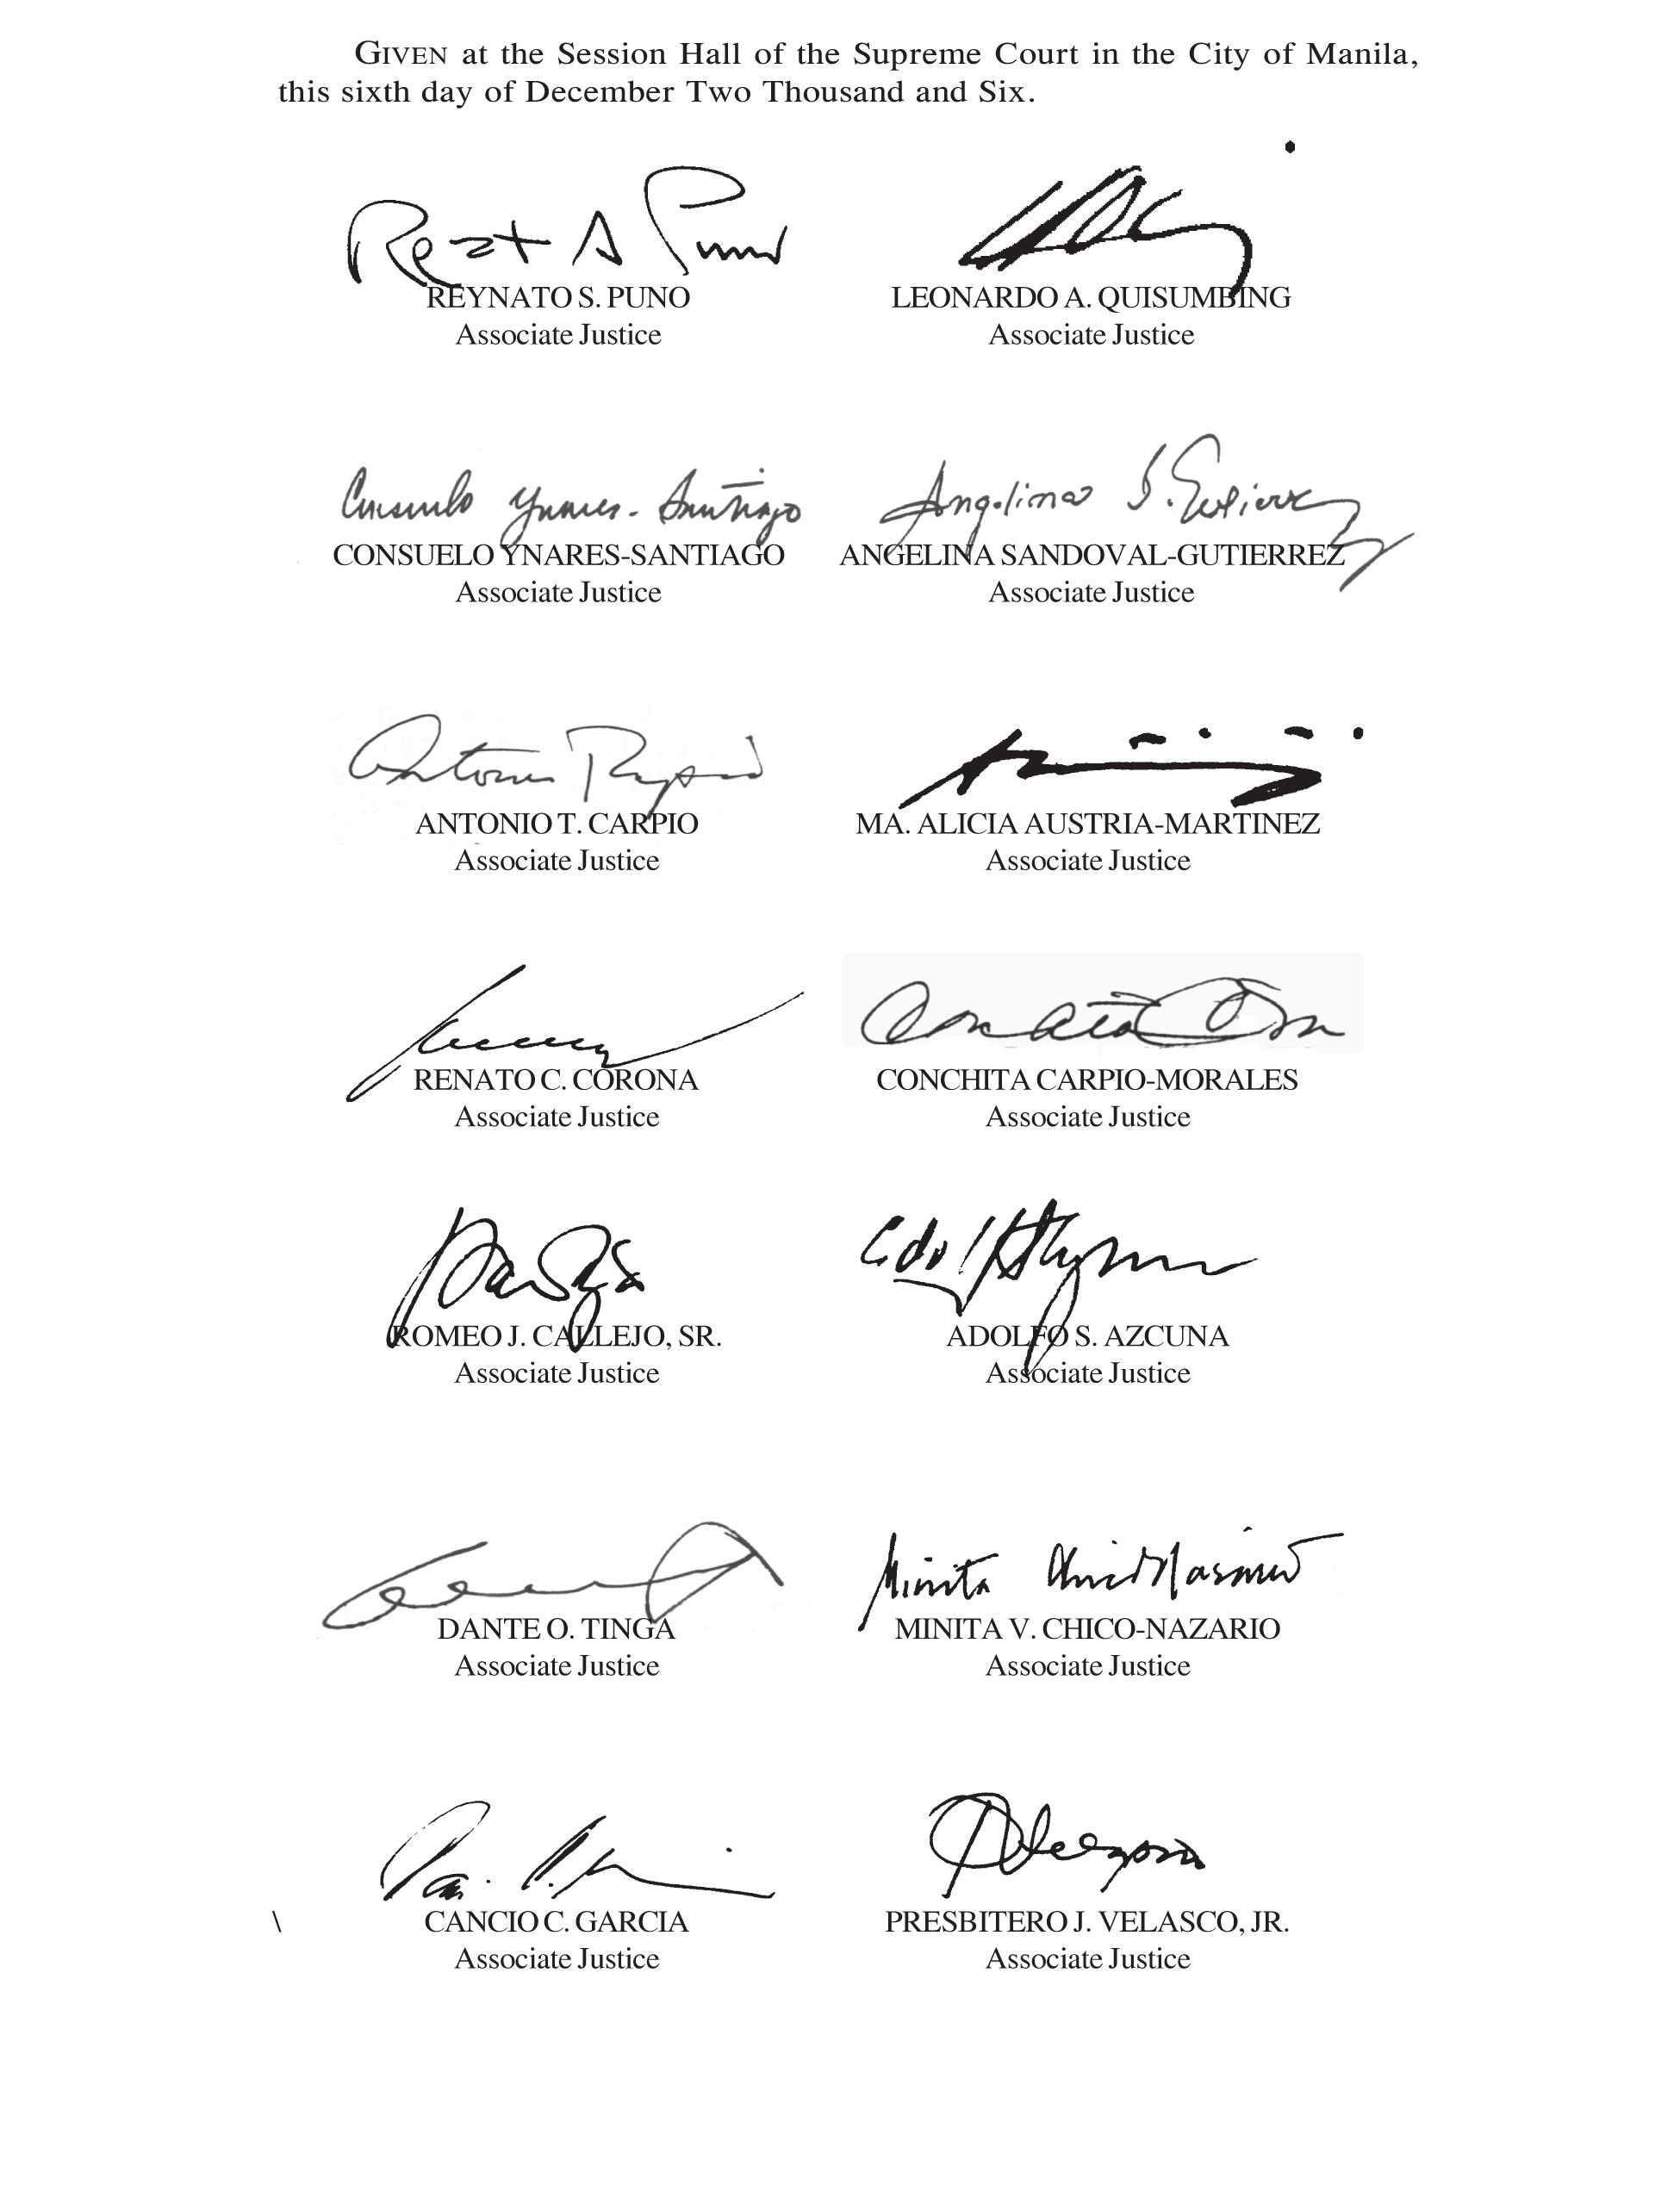 GIVEN at the Session Hall of the Supreme Court in the City of Manila,
this sixth day of December Two Thousand and Six.
REYNATO S. PUNO
Associate Justice
LEONARDO A. QUISUMBING
Associate Justice
CONSUELO YNARES-SANTIAGO
Associate Justice
ANGELINA SANDOVAL-GUTIERREZ
Associate Justice
ANTONIO T. CARPIO
Associate Justice
MA. ALICIA AUSTRIA-MARTINEZ
Associate Justice
RENATO C. CORONA
Associate Justice
CONCHITA CARPIO-MORALES
Associate Justice
ROMEO J. CALLEJO, SR.
Associate Justice
ADOLFO S. AZCUNA
Associate Justice
DANTE O. TINGA
Associate Justice
MINITA V. CHICO-NAZARIO
Associate Justice
\ CANCIO C. GARCIA
Associate Justice
PRESBITERO J. VELASCO, JR.
Associate Justice